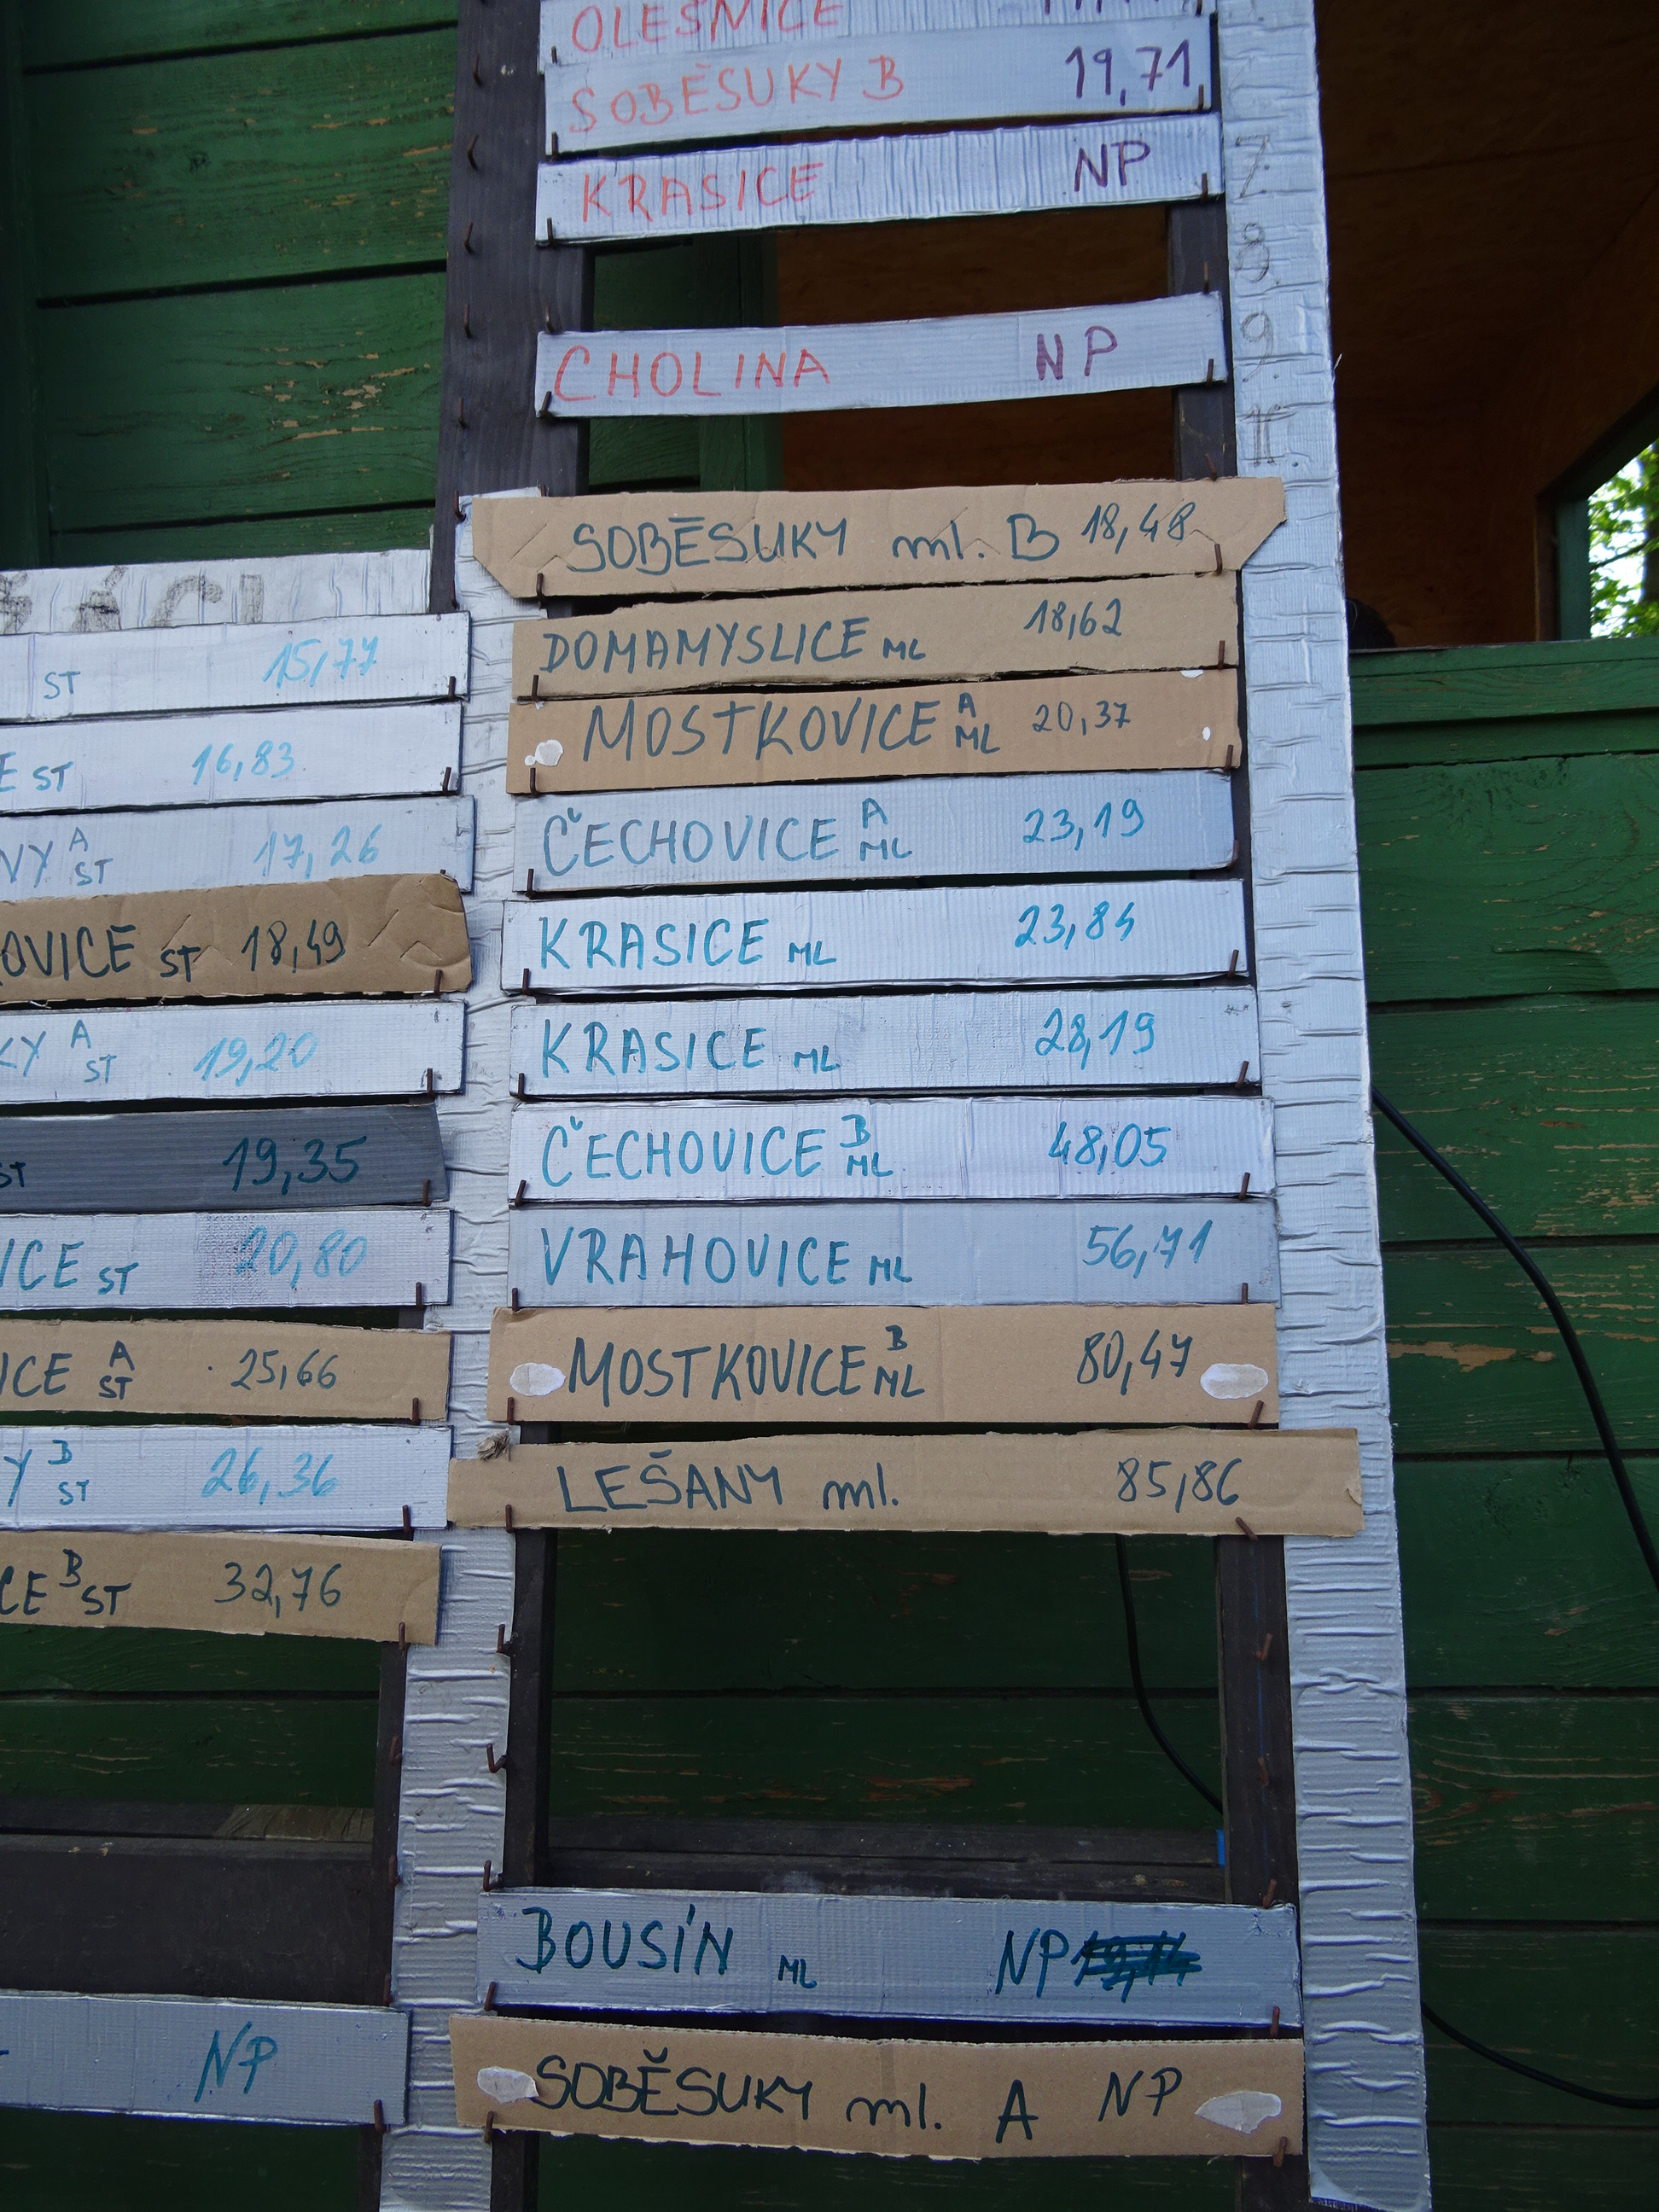 OLEŠNICE
SOBĚSUKY B 19,71
KRASICE NP 7
8
CHOLINA NP 9
SOBĚSUKY ml. B 18,48
DOMAMYSLICE ML 18,62
MOSTKOVICE A ML 20,37
ČECHOVICE A ML 23,19
KRASICE ML 23,84
KRASICE ML 28,19
ČECHOVICE B ML 48,05
VRAHOVICE ML 56,71
MOSTKOVICE B ML 80,47
LEŠANY ml. 85,86
BOUSÍN ML NP
SOBĚSUKY ml. A NP
ŽÁCI
ST 15,77
E ST 16,83
NY A ST 17,26
OVICE ST 18,49
KY A ST 19,20
ST 19,35
ICE ST 20,80
ICE A ST 25,66
Y B ST 26,36
CE B ST 32,76
NP